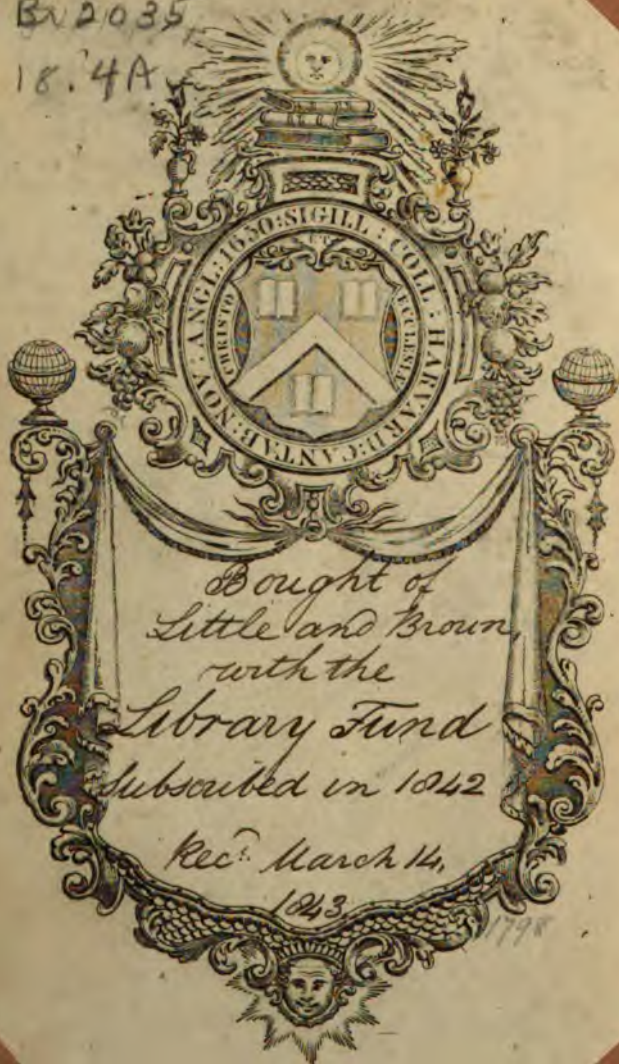 Br 2035,
18.4A
SIGILL : COLL : HARVARD : CANTAB : NOV : ANGL : 1650 :
CHRISTO ET ECCLESIÆ
Bought of
Little and Brown,
with the
Library Fund
Subscribed in 1842
Rec'd. March 14,
1843.
1798